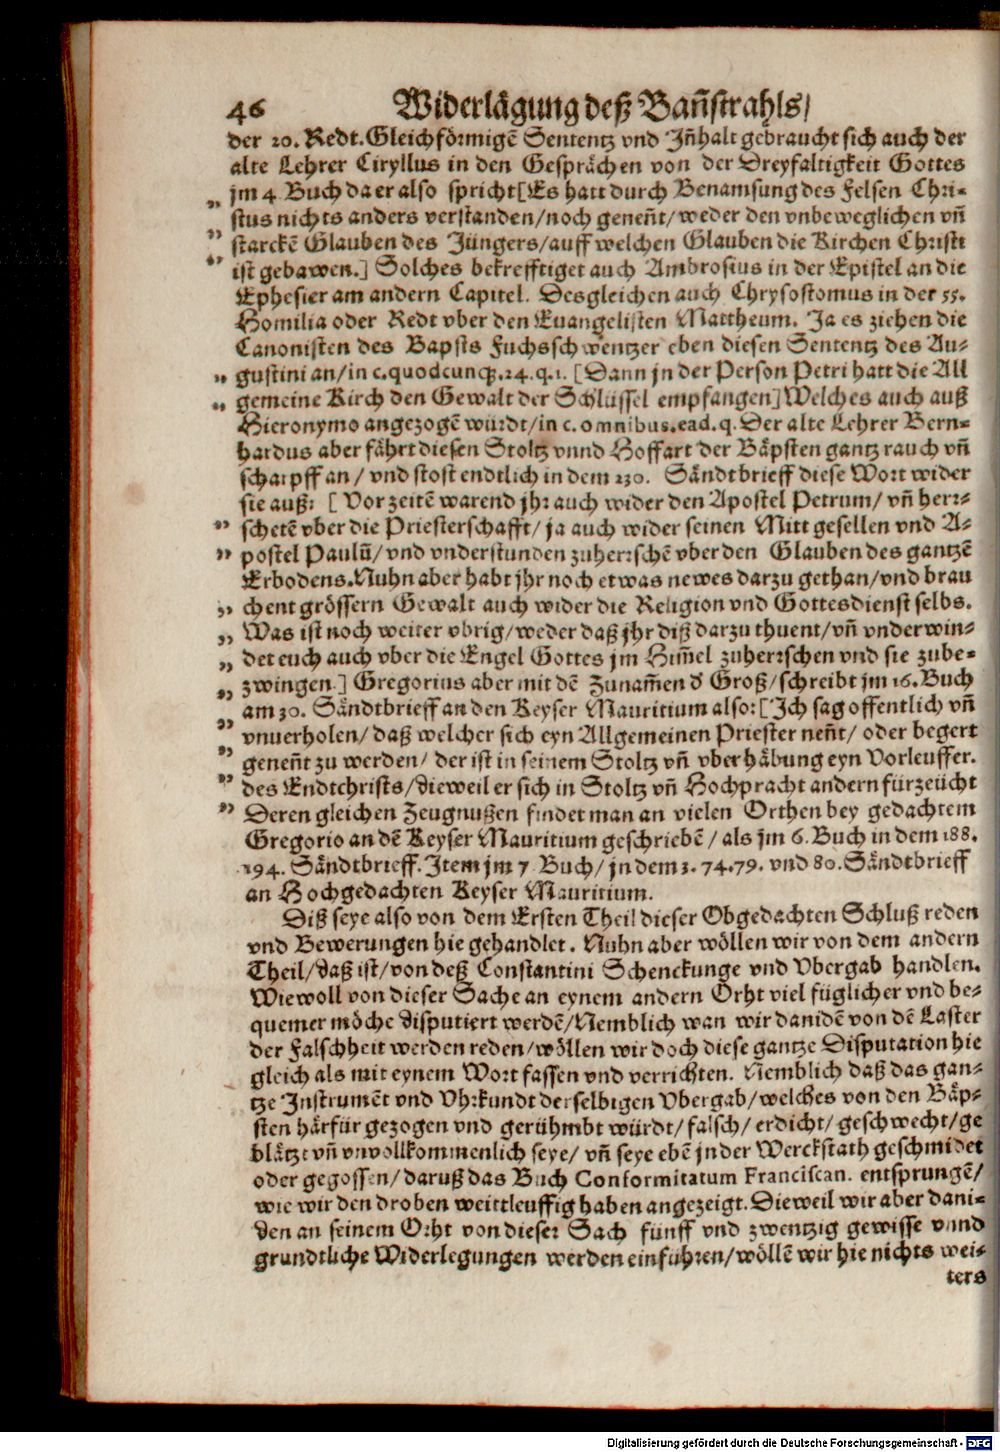 46 Widerlägung deß Bañstrahls/
der 20. Redt. Gleichförmigẽ Sententz vnd Jñhalt gebraucht sich auch der
alte Lehrer Ciryllus in den Gesprächen von der Dreyfaltigkeit Gottes
jm 4 Buch da er also spricht [Es hatt durch Benamsung des Felsen Chri-
„ stus nichts anders verstanden/ noch geneñt/ weder den vnbeweglichen vñ
„ starckẽ Glauben des Jüngers/ auff welchen Glauben die Kirchen Christi
„ ist gebawen.] Solches bekrefftiget auch Ambrosius in der Epistel an die
Ephesier am andern Capitel. Desgleichen auch Chrysostomus in der 55.
Homilia oder Redt vber den Euangelisten Mattheum. Ja es ziehen die
Canonisten des Bapsts Fuchsschwentzer eben diesen Sententz des Au-
„ gustini an/ in c. quodcunq;. 24. q. 1. [Dann jn der Person Petri hatt die All
„ gemeine Kirch den Gewalt der Schlüssel empfangen] Welches auch auß
Hieronymo angezogẽ würdt/ in c. omnibus. ead. q. Der alte Lehrer Bern-
hardus aber fährt diesen Stoltz vnnd Hoffart der Bäpsten gantz rauch vñ
scharpff an/ vnd stost endtlich in dem 230. Sändtbrieff diese Wort wider
sie auß: [Vor zeitẽ warend jhr auch wider den Apostel Petrum/ vñ herr-
„ schetẽ vber die Priesterschafft/ ja auch wider seinen Mittgesellen vnd A-
„ postel Paulũ/ vnd vnderstunden zuherrschẽ vber den Glauben des gantzẽ
Erbodens. Nuhn aber habt jhr noch etwas newes darzu gethan/ vnd brau
„ chent grössern Gewalt auch wider die Religion vnd Gottesdienst selbs.
„ Was ist noch weiter vbrig/ weder daß jhr diß darzu thuent/ vñ vnderwin-
„ det euch auch vber die Engel Gottes jm Him̃el zuherrschen vnd sie zube-
„ zwingen.] Gregorius aber mit dẽ Zunam̃en d' Groß/ schreibt jm 16. Buch
„ am 30. Sändtbrieff an den Keyser Mauritium also: [Ich sag offentlich vñ
„ vnuerholen/ daß welcher sich eyn Allgemeinen Priester neñt/ oder begert
„ geneñt zu werden/ der ist in seinem Stoltz vñ vberhäbung eyn Vorleuffer.
„ des Endtchrists/ dieweil er sich in Stoltz vñ Hochpracht andern fürzeücht
„ Deren gleichen Zeugnußen findet man an vielen Orthen bey gedachtem
Gregorio an dẽ Keyser Mauritium geschriebẽ/ als jm 6. Buch in dem 188.
194. Sändtbrieff. Item jm 7 Buch/ jn dem 3. 74. 79. vnd 80. Sändtbrieff
an Hochgedachten Keyser Mauritium.
Diß seye also von dem Ersten Theil dieser Obgedachten Schluß reden
vnd Bewerungen hie gehandlet. Nuhn aber wöllen wir von dem andern
Theil/ daß ist/ von deß Constantini Schenckunge vnd Vbergab handlen.
Wiewoll von dieser Sache an eynem andern Orht viel füglicher vnd be-
quemer möche disputiert werdẽ/ Nemblich wan wir danidẽ von dẽ Laster
der Falschheit werden reden/ wöllen wir doch diese gantze Disputation hie
gleich als mit eynem Wort fassen vnd verrichten. Nemblich daß das gan-
tze Instrumẽt vnd Vhrkundt derselbigen Vbergab/ welches von den Bäp-
sten härfür gezogen vnd gerühmbt würdt/ falsch/ erdicht/ geschwecht/ ge
blätzt vñ vnvollkommenlich seye/ vñ seye ebẽ jn der Werckstath geschmidet
oder gegossen/ daruß das Buch Conformitatum Franciscan. entsprungẽ/
wie wir den droben weittleuffig haben angezeigt. Dieweil wir aber dani-
den an seinem Orht von dieser Sach fünff vnd zwentzig gewisse vnnd
grundtliche Widerlegungen werden einführen/ wöllẽ wir hie nichts wei-
ters
Digitalisierung gefördert durch die Deutsche Forschungsgemeinschaft - DFG